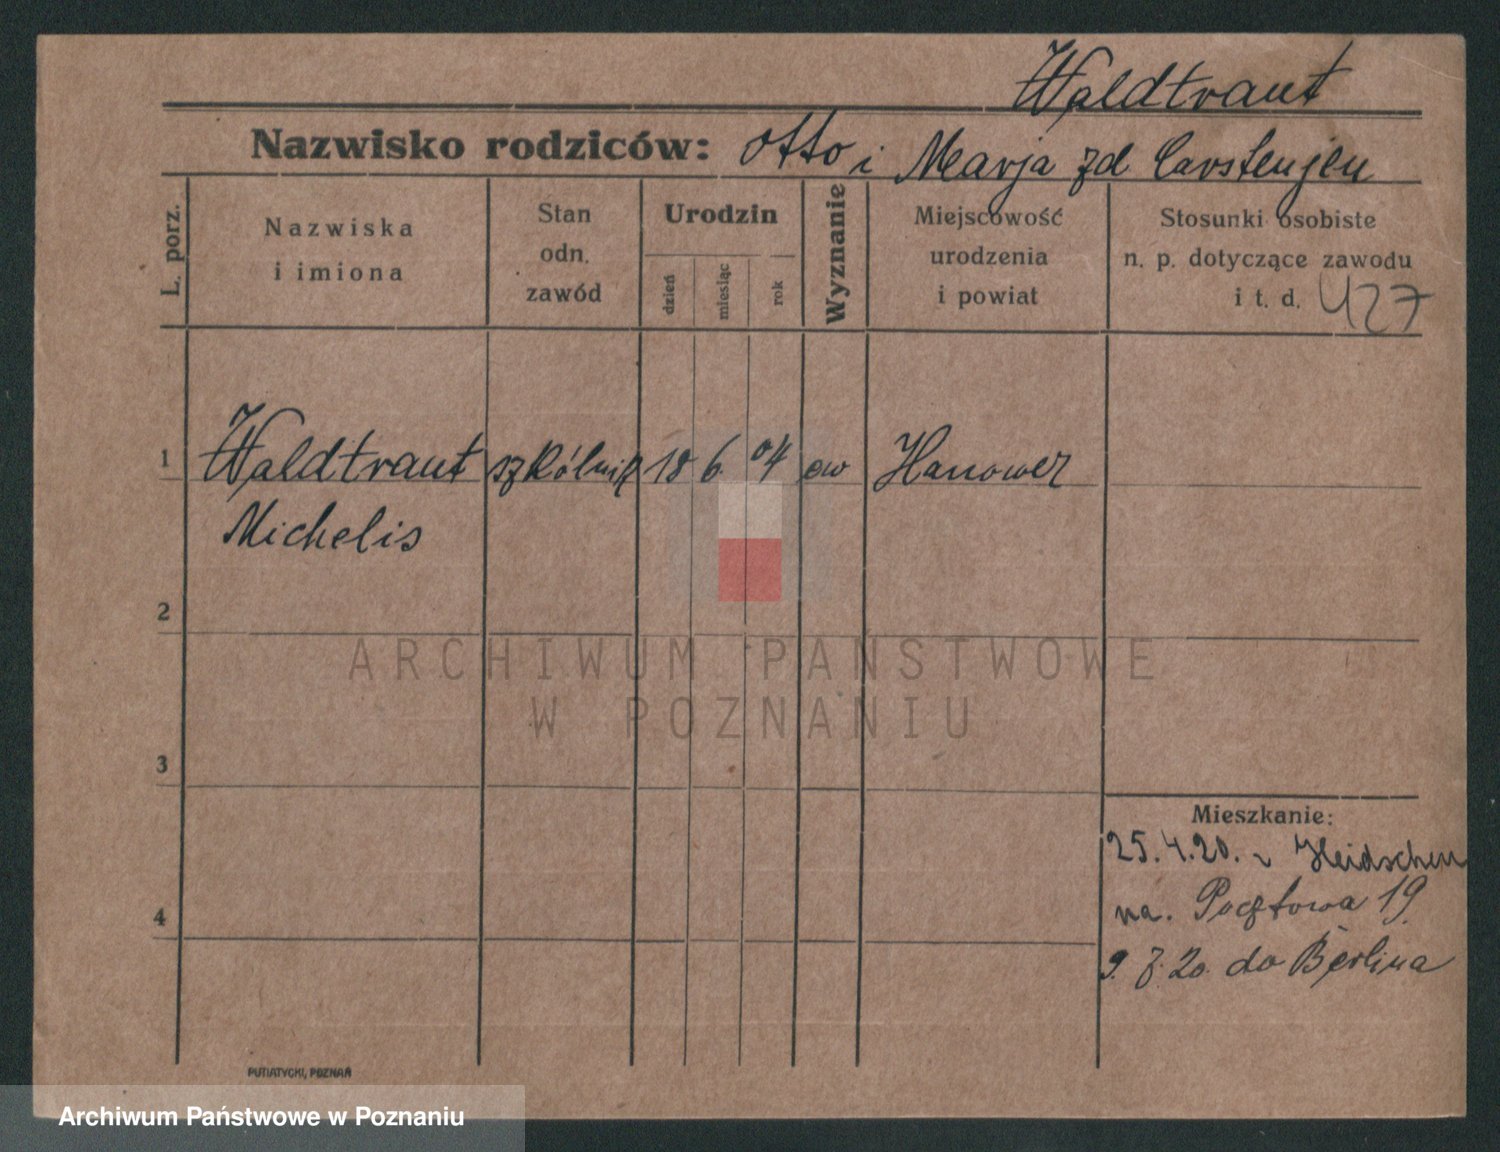 Waldtraut
Nazwisko rodziców: Otto i Marja zd Carstenjen
L. porz.
Nazwiska
i imiona
Stan
odn.
zawód
Urodzin
dzień
miesiąc
rok
Wyznanie
Miejscowość
urodzenia
i powiat
Stosunki osobiste
n. p. dotyczące zawodu
i t. d. 427
1 Waldtraut szkólnik 18 6 04 ew Hanower
Michelis
2
ARCHIWUM PAŃSTWOWE
W POZNANIU
3
Mieszkanie:
25.4.20. v Heidschen
na. Pocztowa 19
4
9. 7. 20. do Berlina
PUTIATYCKI, POZNAŃ
Archiwum Państwowe w Poznaniu